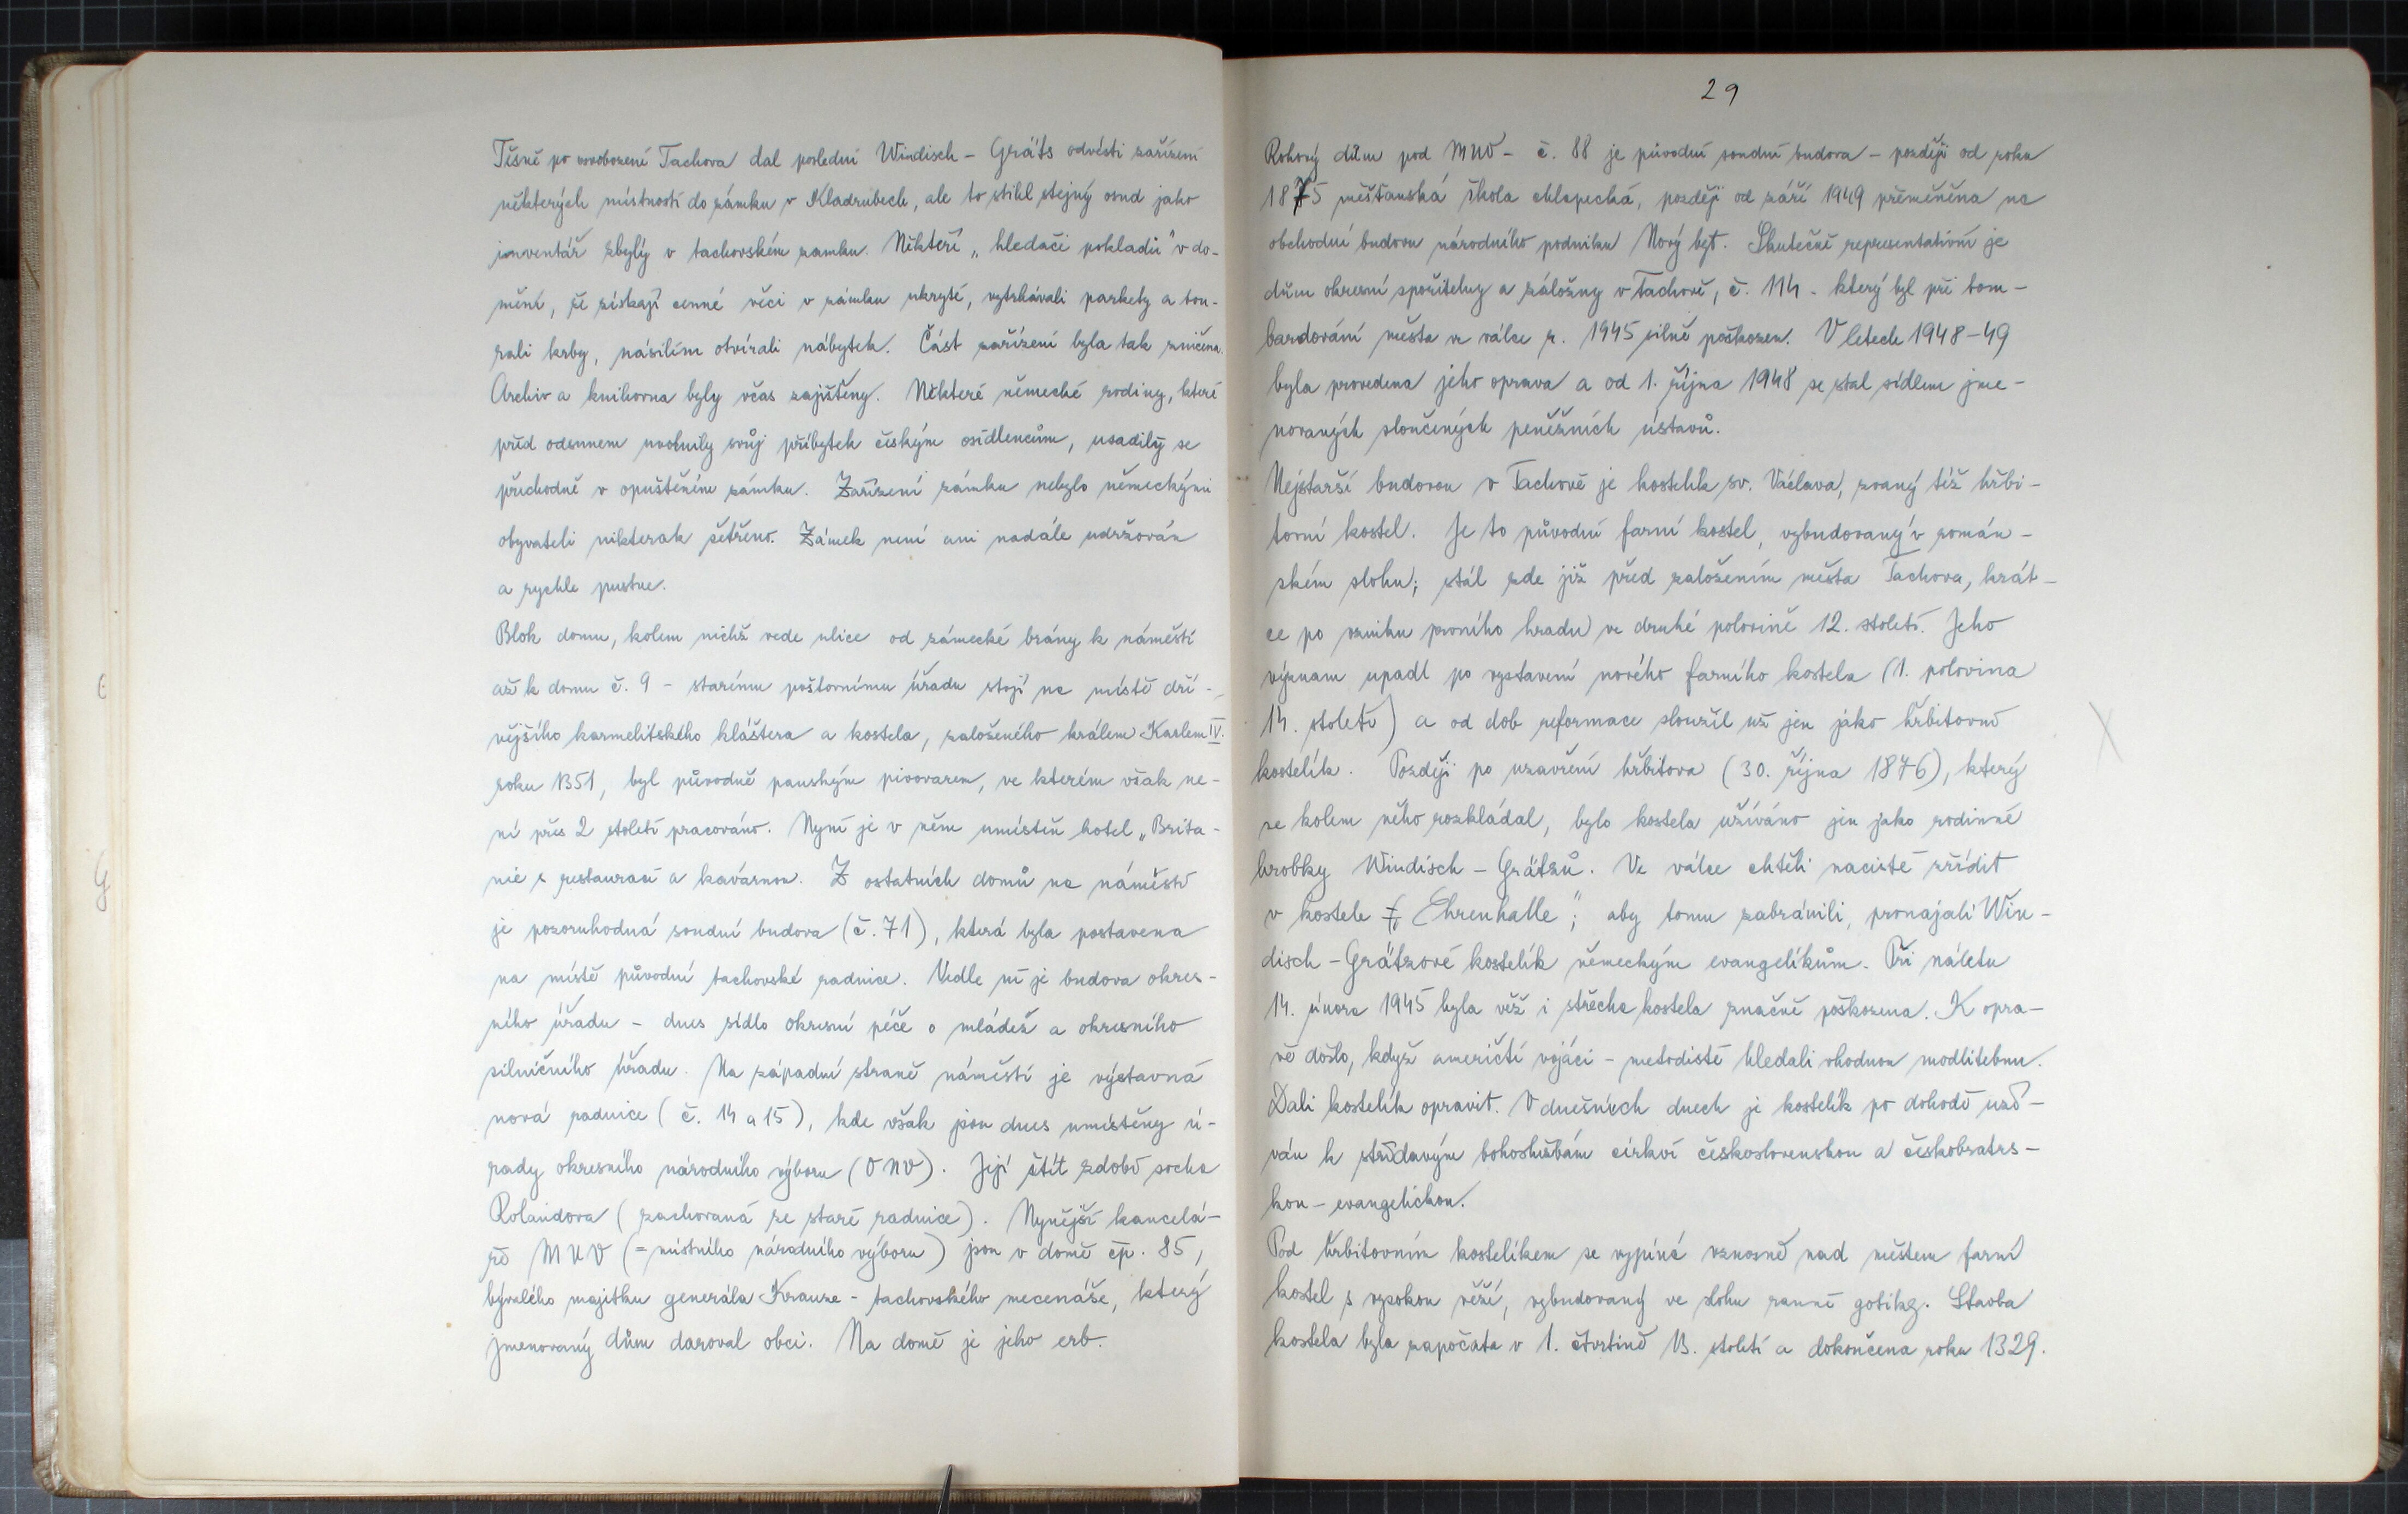 Těsně po osvobození Tachova dal poslední Windisch - Gräts odvésti zařízení
některých místností do zámku v Kladrubech, ale to stihl stejný osud jako
inventář zbylý v tachovském zamku. Někteří „hledači pokladů" v do-
mění, že získají cenné věci v zámku ukryté, vytrhávali parkety a bou-
rali krby, násilím otvírali nábytek. Část zařízení byla tak zničena.
Archiv a knihovna byly včas zajištěny. Některé německé rodiny, které
před odsunem uvolnily svůj příbytek českým osídlencům, usadily se
přechodně v opuštěném zámku. Zařízení zámku nebylo německými
obyvateli nikterak šetřeno. Zámek není ani nadále udržován
a rychle pustne.
Blok domu, kolem nichž vede ulice od zámecké brány k náměstí
až k domu č. 9 - starému poštovnímu úřadu stojí na místě dří-
vějšího karmelitského kláštera a kostela, založeného králem Karlem IV.
roku 1351, byl původně panským pivovarem, ve kterém však ne-
ní přes 2 století pracováno. Nyní je v něm umístěn hotel „Brita-
nie s restaurací a kavárnou. Z ostatních domů na náměstí
je pozoruhodná soudní budova (č. 71), která byla postavena
na místě původní tachovské radnice. Vedle ní je budova okres-
ního úřadu - dnes sídlo okresní péče o mládež a okresního
silničního úřadu. Na západní straně náměstí je výstavná
nová radnice (č. 14 a 15), kde však jsou dnes umístěny ú-
řady okresního národního výboru (ONV). Její štít zdobí socha
Rolandova (zachovaná ze staré radnice). Nynější kancelá-
ře MNV (= místního národního výboru) jsou v domě čp. 85,
bývalého majitku generála Krause - tachovského mecenáše, který
jmenovaný dům daroval obci. Na domě je jeho erb.
29
Rohový dům pod MNV - č. 88 je původní soudní budova - později od roku
1875 měšťanská škola chlapecká, později od září 1949 přeměněna na
obchodní budovu národního podniku Nový byt. Skutečně representativní je
dům okresní spořitelny a záložny v Tachově, č. 114 - který byl při bom-
bardování města ve válce r. 1945 silně poškozen. V letech 1948-49
byla provedena jeho oprava a od 1. října 1948 se stal sídlem jme-
novaných sloučených peněžních ústavů.
Nejstarší budovou v Tachově je kostelík sv. Václava, zvaný též hřbi-
tovní kostel. Je to původní farní kostel, vybudovaný v román-
ském slohu; stál zde již před založením města Tachova, krát-
ce po vzniku prvního hradu ve druhé polovině 12. století. Jeho
význam upadl po vystavení nového farního kostela (1. polovina
14. století) a od dob reformace sloužil už jen jako hřbitovní
kostelík. Později po uzavření hřbitova (30. října 1876), který
se kolem něho rozkládal, bylo kostela užíváno jen jako rodinné
hrobky Windisch - Grätzů. Ve válce chtěli nacisté zřídit
v kostele „Ehrenhalle"; aby tomu zabránili, pronajali Win-
disch - Grätzové kostelík německým evangelíkům. Při náletu
14. února 1945 byla věž i střecha kostela značně poškozena. K opra-
vě došlo, když američtí vojáci - metodisté hledali vhodnou modlitebnu.
Dali kostelík opravit. V dnešních dnech je kostelík po dohodě uží-
ván k střídavým bohoslužbám církví československou a českobratrs-
kou - evangelickou.
Pod hřbitovním kostelíkem se vypíná vznosně nad městem farní
kostel s vysokou věží, vybudovaný ve slohu ranné gotiky. Stavba
kostela byla započata v 1. čtvrtině 13. století a dokončena roku 1329.